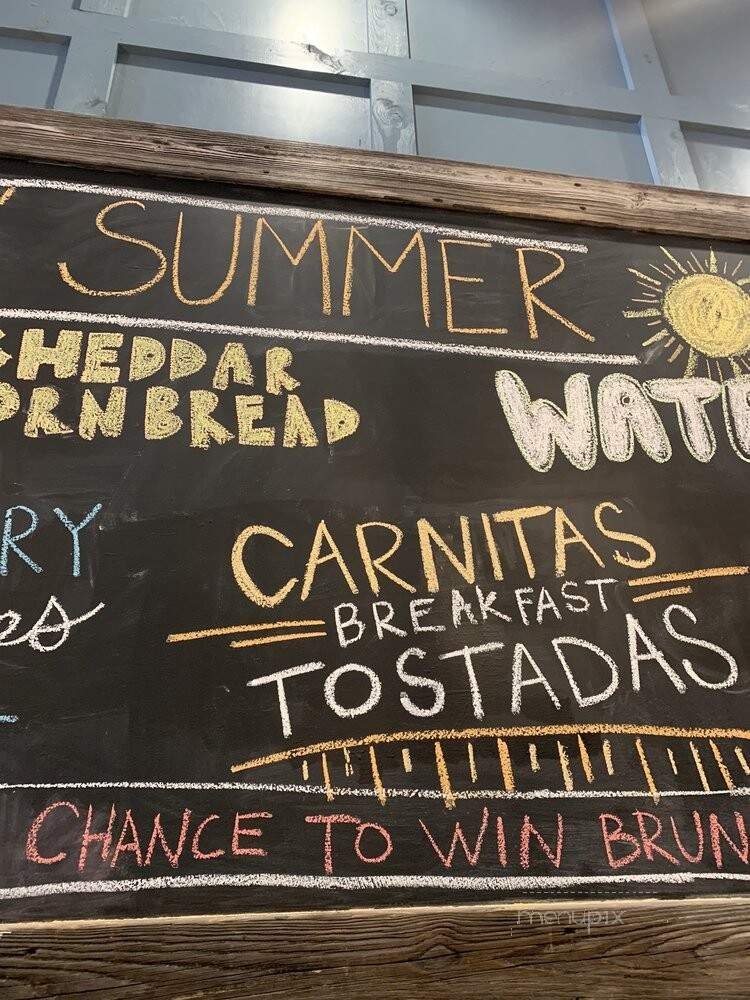 SUMMER
CHEDDAR
CORNBREAD
WAT
RY
es
CARNITAS
BREAKFAST
TOSTADAS
CHANCE TO WIN BRUN
menupix